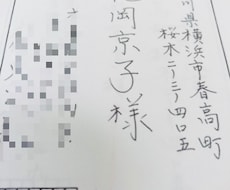 川県横浜市春高町
桜木二ー三ー四〇五
岡京子様